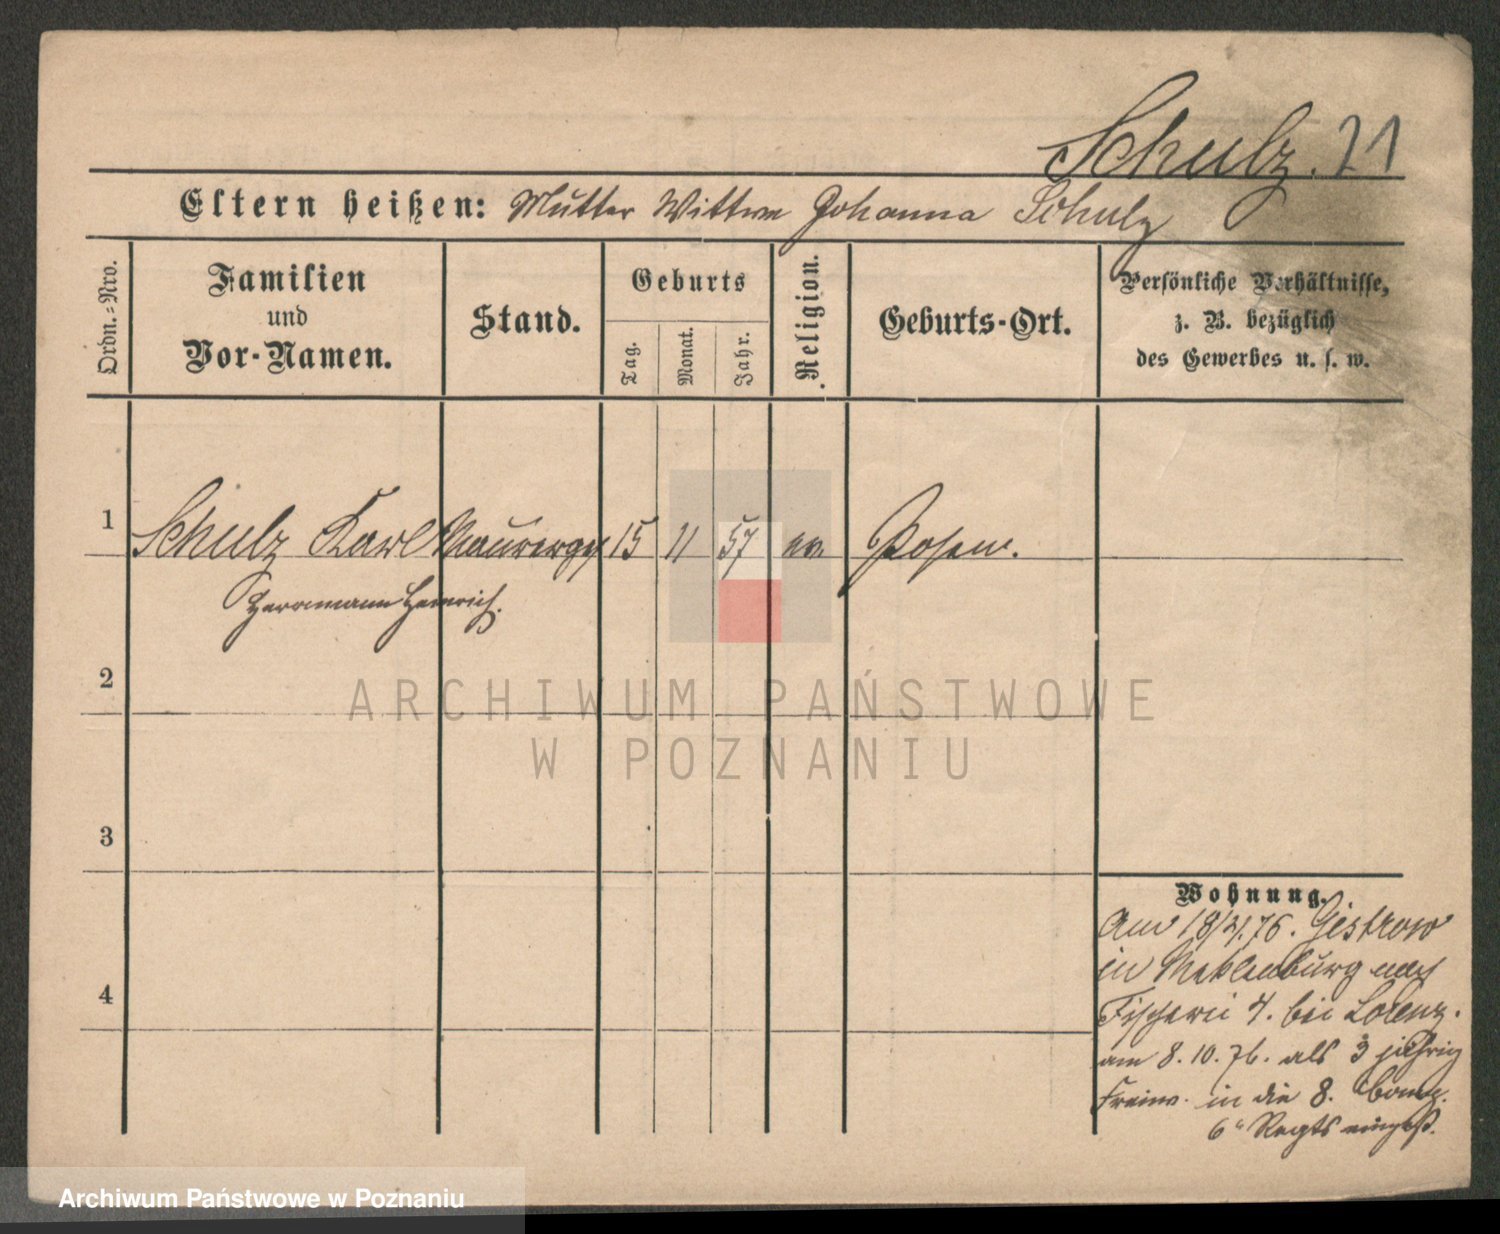 Schulz. 21
Eltern heißen: Mutter Wittwe Johanna Schulz
Ordn.-Nro.
Familien
und
Vor-Namen.
Stand.
Geburts
Tag.
Monat.
Jahr.
Religion.
Geburts-Ort.
Persönliche Verhältnisse,
z. B. bezüglich
des Gewerbes u. s. w.
1 Schulz Karl Maurerges 15 11 57 ev. Posen.
Herrmann Heinrich.
2
ARCHIWUM PAŃSTWOWE
W POZNANIU
3
4
Wohnung.
Am 18/2/.76. Gistrow
in Meklenburg nach
Fischerei 4. bei Lorenz.
am 8.10.76. als 3 jährig
Freiw. in die 8. Comp.
6" Regts
Archiwum Państwowe w Poznaniu